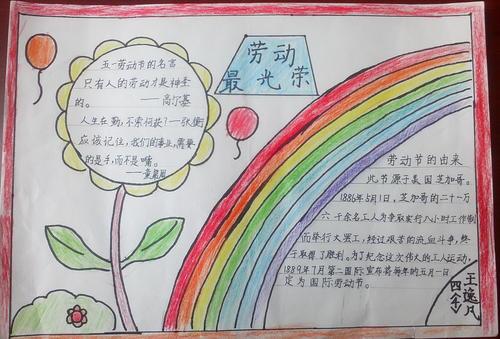 劳动
最光荣
五一劳动节的名言
只有人的劳动才是神圣
的。——高尔基
人生在勤，不索何获？——张衡
应该记住，我们的事业，需要
的是手，而不是嘴。
——童第周
劳动节的由来
此节源于美国芝加哥。
1886年5月1日，芝加哥的二十一万
六千余名工人为争取实行八小时工作制
而举行大罢工，经过艰苦的流血斗争，终
于取得了胜利。为了纪念这次伟大的工人运动，
1889年7月第二国际宣布将每年的五月一日
定为国际劳动节。
王逸凡